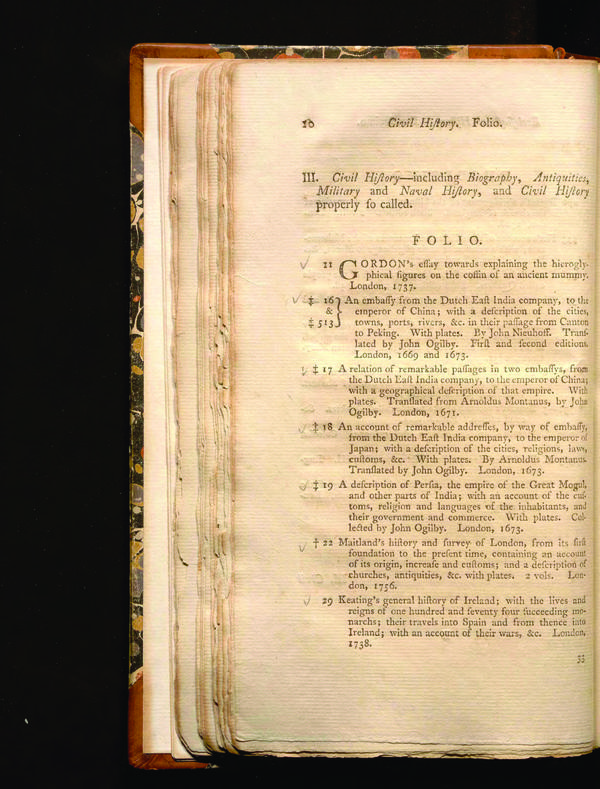 10 Civil Hiſtory. Folio.
III. Civil Hiſtory—including Biography, Antiquities,
Military and Naval Hiſtory, and Civil Hiſtory
properly ſo called.
FOLIO.
11 GORDON's eſſay towards explaining the hierogly-
phical figures on the coffin of an ancient mummy.
London, 1737.
‡ 16 } An embaſſy from the Dutch Eaſt India company, to the
& emperor of China; with a deſcription of the cities,
‡ 513 towns, ports, rivers, &c. in their paſſage from Canton
to Peking. With plates. By John Nieuhoff. Tranſ-
lated by John Ogilby. Firſt and ſecond editions.
London, 1669 and 1673.
‡ 17 A relation of remarkable paſſages in two embaſſys, from
the Dutch Eaſt India company, to the emperor of China;
with a geographical deſcription of that empire. With
plates. Tranſlated from Arnoldus Montanus, by John
Ogilby. London, 1671.
‡ 18 An account of remarkable addreſſes, by way of embaſſy,
from the Dutch Eaſt India company, to the emperor of
Japan; with a deſcription of the cities, religions, laws,
cuſtoms, &c. With plates. By Arnoldus Montanus.
Tranſlated by John Ogilby. London, 1673.
‡ 19 A deſcription of Perſia, the empire of the Great Mogul,
and other parts of India; with an account of the cuſ-
toms, religion and languages of the inhabitants, and
their government and commerce. With plates. Col-
lected by John Ogilby. London, 1673.
† 22 Maitland's hiſtory and ſurvey of London, from its firſt
foundation to the preſent time, containing an account
of its origin, increaſe and cuſtoms; and a deſcription of
churches, antiquities, &c. with plates. 2 vols. Lon-
don, 1756.
29 Keating's general hiſtory of Ireland; with the lives and
reigns of one hundred and ſeventy four ſucceeding mo-
narchs; their travels into Spain and from thence into
Ireland; with an account of their wars, &c. London,
1738.
33